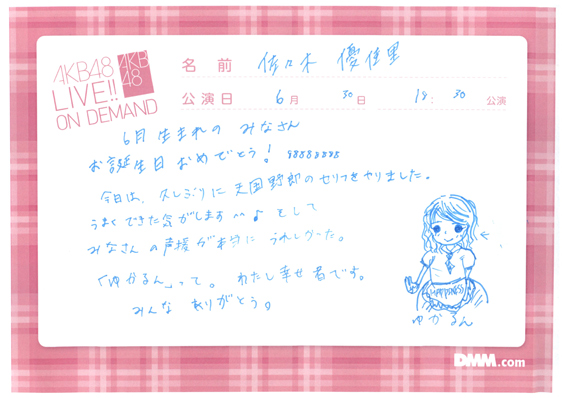 AKB48
LIVE!!
ON DEMAND
AKB
48
名前 佐々木 優佳里
公演日 6月 30日 18:30 公演
6月生まれの みなさん
お誕生日おめでとう! 98888888
今日は、久しぶりに天国野郎のセリフをやりました。
うまくできた気がします^^♪ そして
みなさんの声援が本当に うれしかった。
「ゆかるん」って。 わたし幸せ者です。
みんな ありがとう。
HAPPINESS
ゆかるん
DMM.com